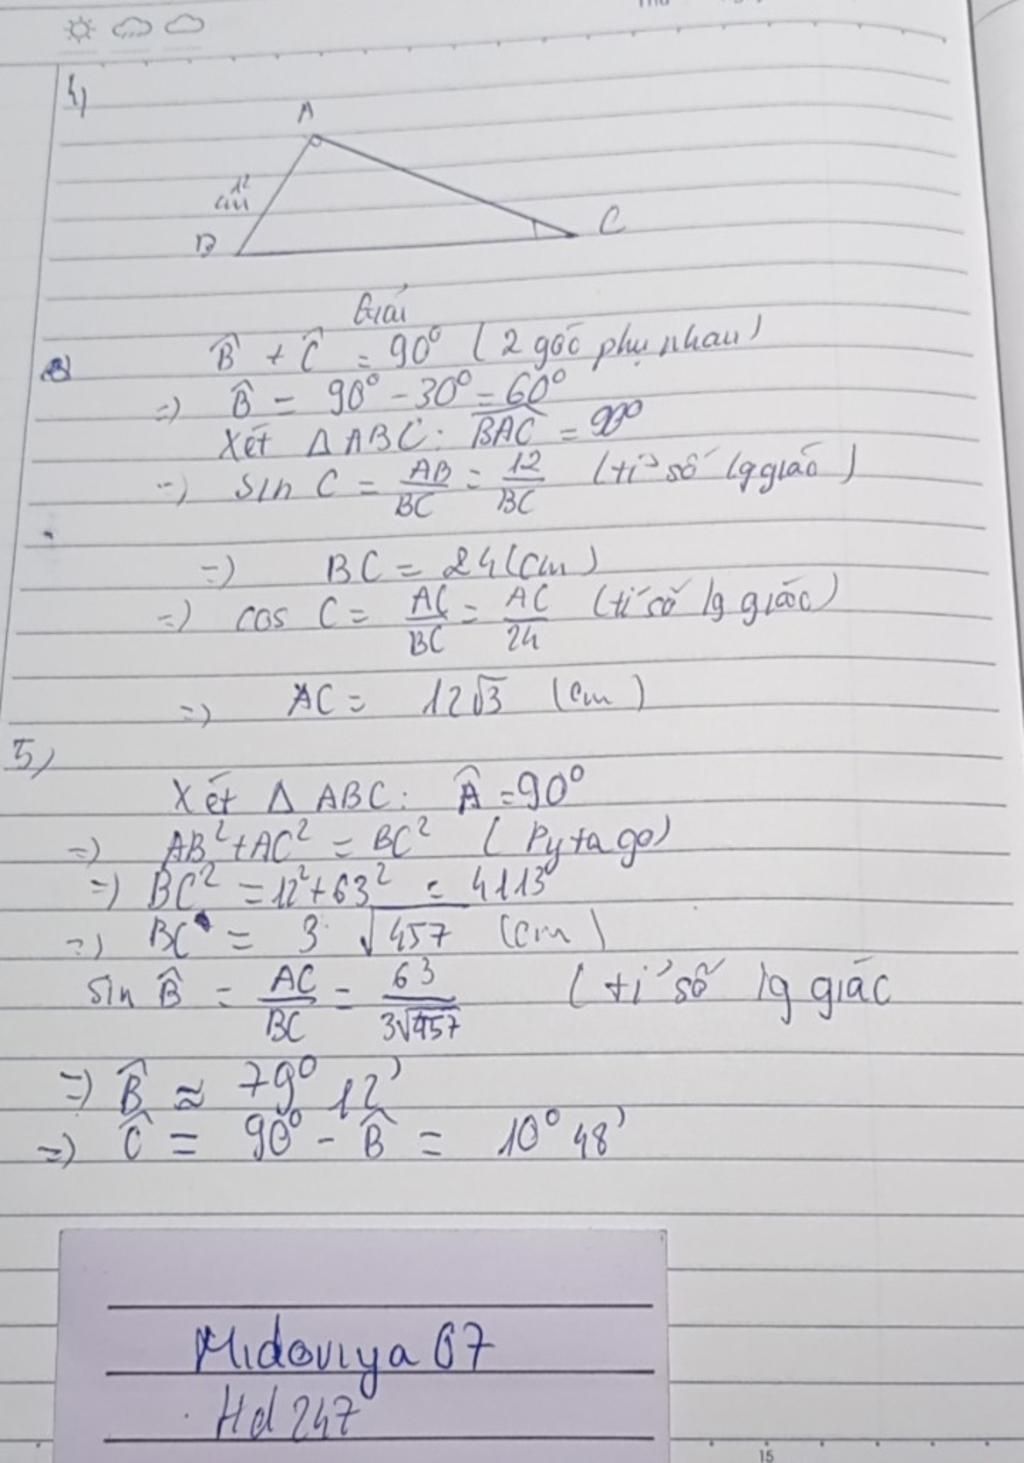 4)
A
12
cm
B
C
Giải
B̂ + Ĉ = 90° (2 góc phụ nhau)
=) B̂ = 90° - 30° = 60°
Xét Δ ABC: BAC = 90°
=) sin C = AB/BC = 12/BC (tỉ số lg giác)
=) BC = 24 (cm)
=) cos C = AC/BC = AC/24 (tỉ số lg giác)
=) AC = 12√3 (cm)
5)
Xét Δ ABC: Â = 90°
=) AB² + AC² = BC² (Pytago)
=) BC² = 12² + 63² = 4113
=) BC = 3√457 (cm)
sin B̂ = AC/BC = 63/3√457 (tỉ số lg giác
=) B̂ ≈ 79° 12'
=) Ĉ = 90° - B̂ = 10° 48'
Midoviya 07
Hd 247
15